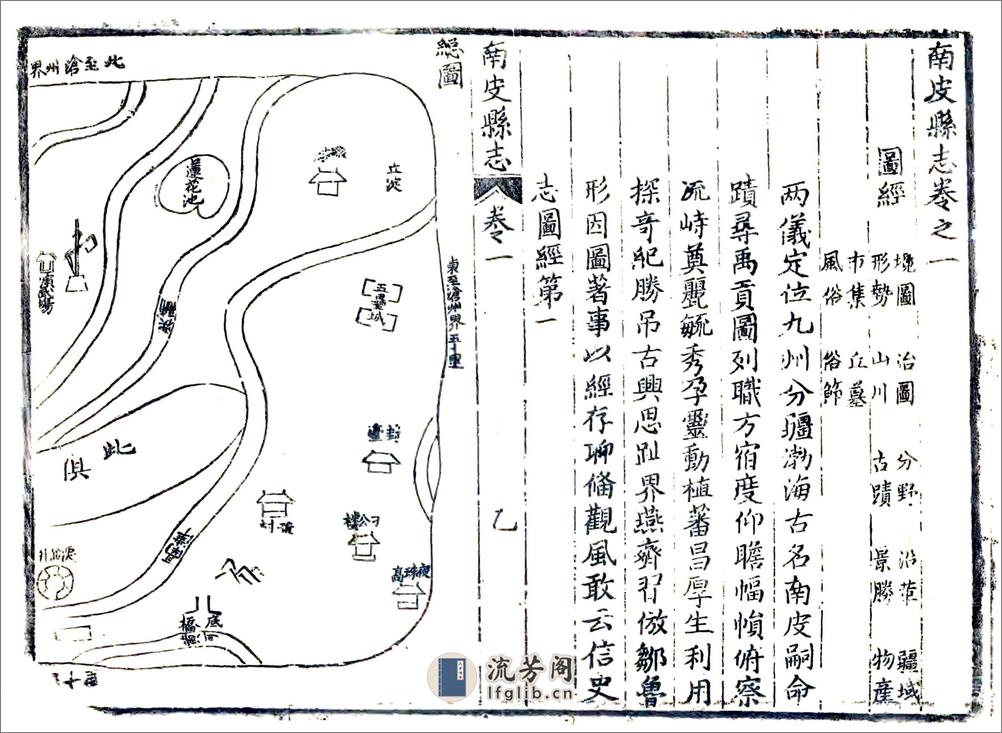 南皮縣志卷之一
圖經
境圖 治圖 分野 沿革 疆域
形勢 山川 古蹟 景勝 物產
市集 丘墓
風俗 俗節
两儀定位九州分疆渤海古名南皮嗣命
蹟尋禹貢圖列職方宿度仰瞻幅幀俯察
流峙奠麗毓秀孕靈動植蕃昌厚生利用
探奇紀勝吊古興思趾界燕齊習倣鄒魯
形因圖著事以經存聊备觀風敢云信史
志圖經第一
南皮縣志
卷一
乙
總圖
東至滄州界五十里
北至滄州界
蓮花池
五壘城
封臺
此
俱
底
橋
流芳阁
lfglib.cn